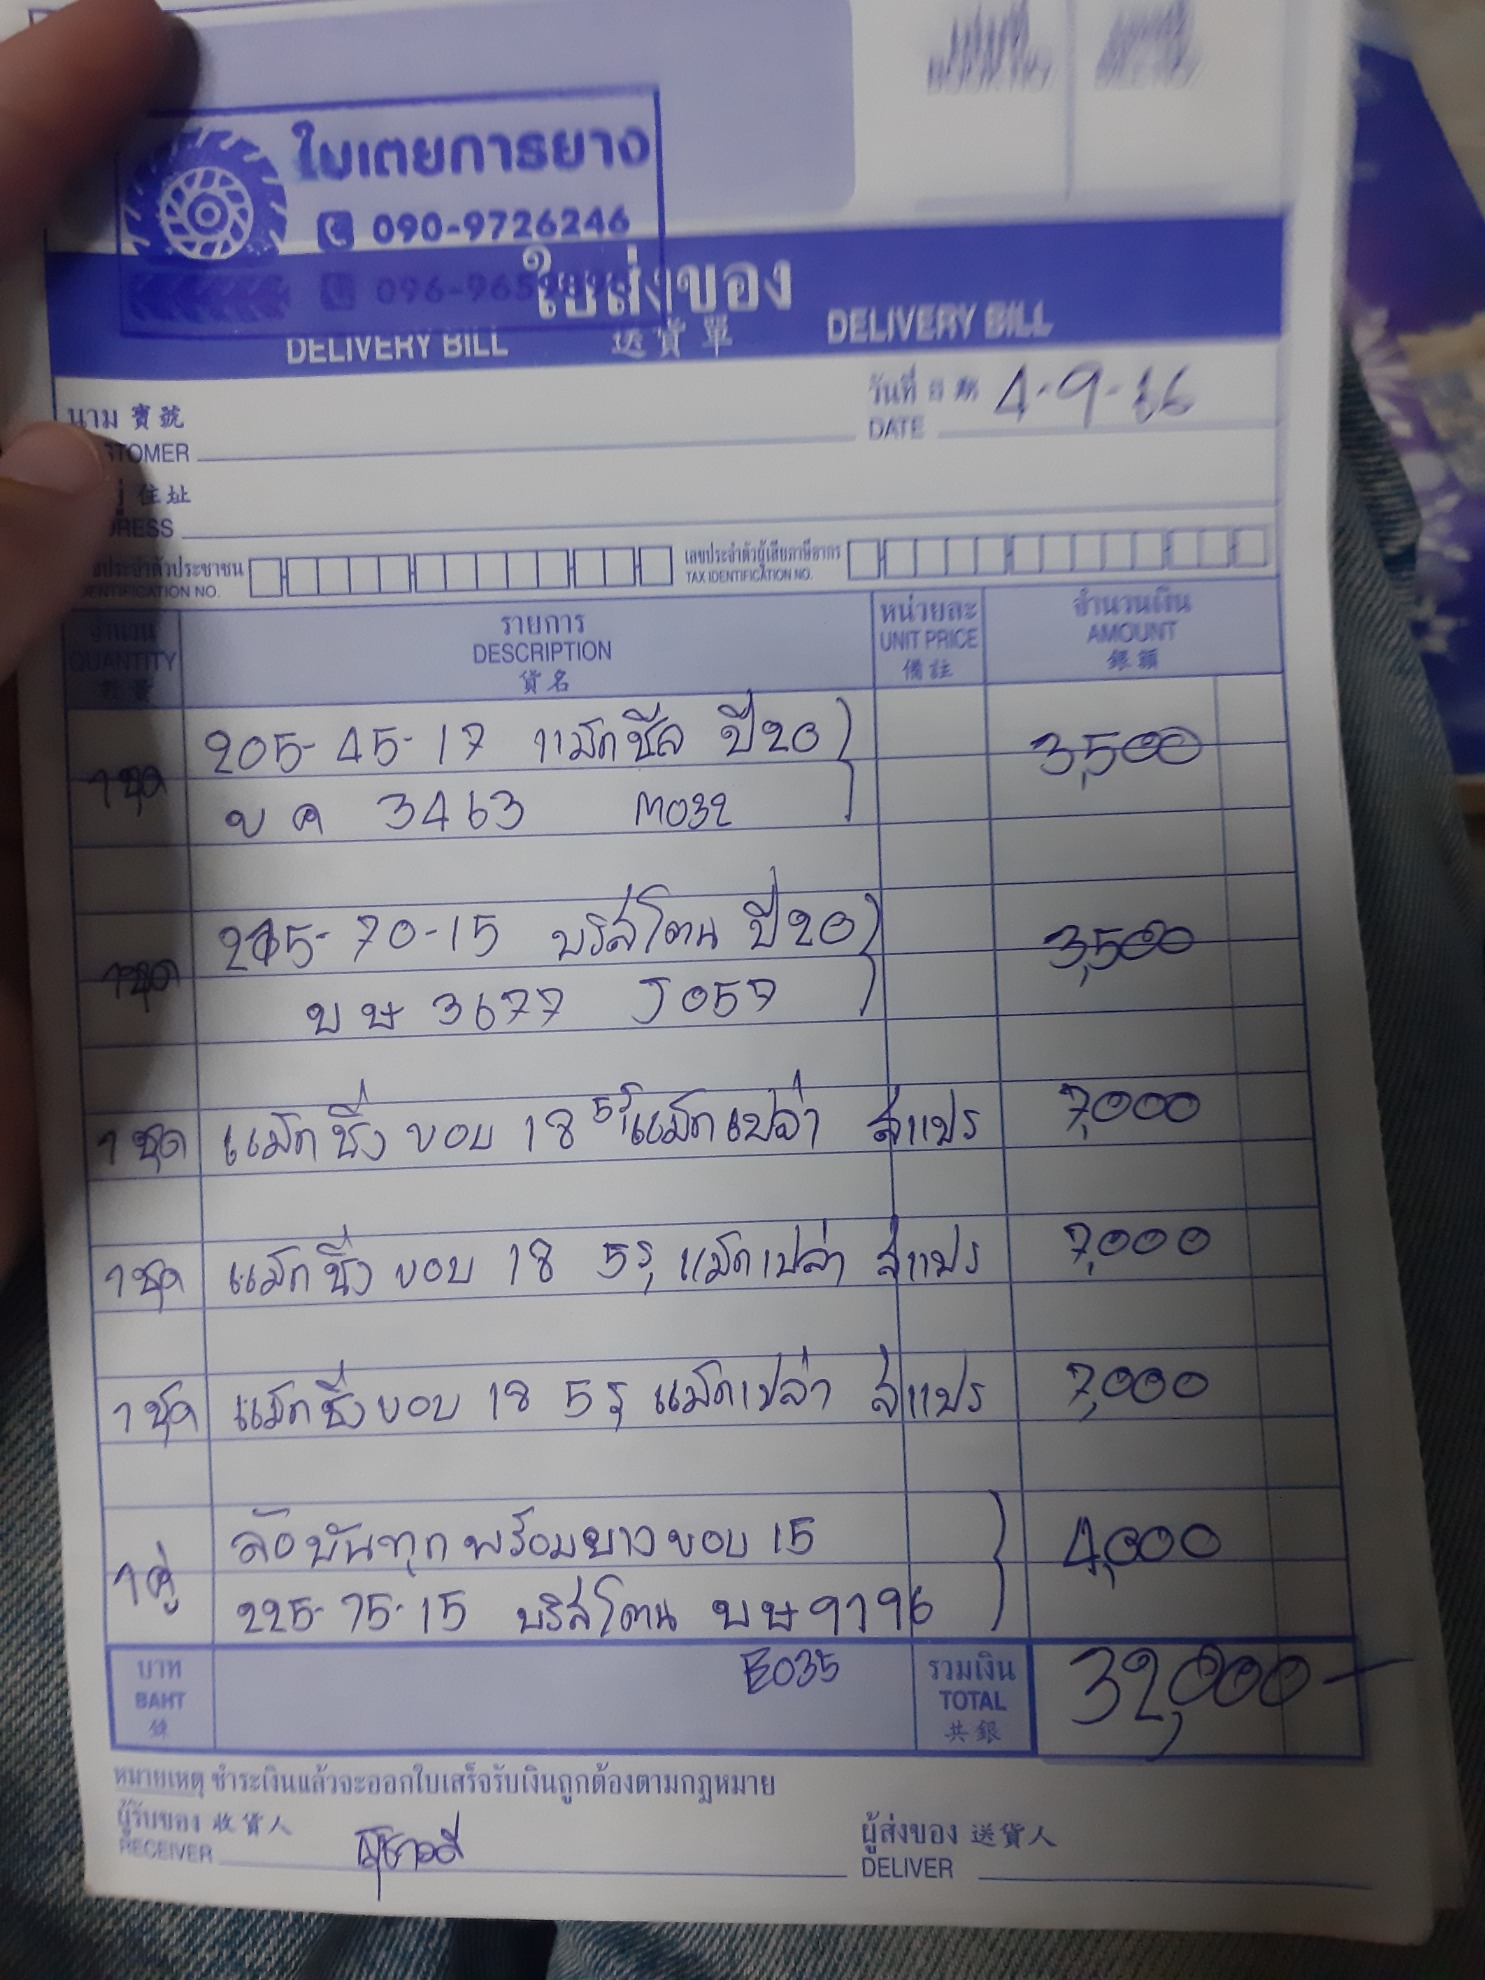 ใบเตยการยาง
090-9726246
096-965
ใบส่งของ
DELIVERY BILL 送貨單 DELIVERY BILL
นาม 寶號
วันที่ 日期 4-9-66
TOMER
DATE
住址
RESS
ประจำตัวประชาชน
เลขประจำตัวผู้เสียภาษีอากร
IDENTIFICATION NO.
TAX IDENTIFICATION NO.
จำนวน รายการ หน่วยละ จำนวนเงิน
QUANTITY DESCRIPTION UNIT PRICE AMOUNT
數量 貨名 備註 銀額
205-45-17 แม็กชีล ปี20 3,500
1ชุด
บค 3463 M032
215-70-15 บริสโตน ปี20 3,500
1ชุด
บษ 3677 J057
1ชุด แม็กซิ่ง ขอบ 18 5รู แม็กเปล่า สแปร 7,000
1ชุด แม็กซิ่ง ขอบ 18 5รู แม็กเปล่า สแปร 7,000
1ชุด แม็กซิ่ง ขอบ 18 5รู แม็กเปล่า สแปร 7,000
ล้อบันทุกพร้อมยางขอบ 15 4,000
1คู่
225-75-15 บริสโตน บษ 9196
E035
บาท รวมเงิน 32,000-
BAHT TOTAL
銖 共銀
หมายเหตุ ชำระเงินแล้วจะออกใบเสร็จรับเงินถูกต้องตามกฎหมาย
ผู้รับของ 收貨人 ผู้ส่งของ 送貨人
RECEIVER DELIVER